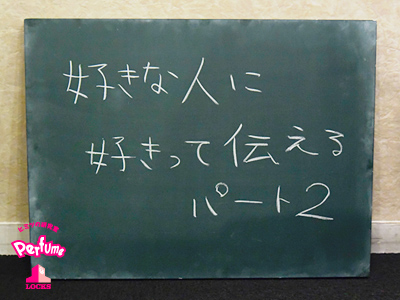 好きな人に
好きって伝える
パート2
Perfume
LOCKS